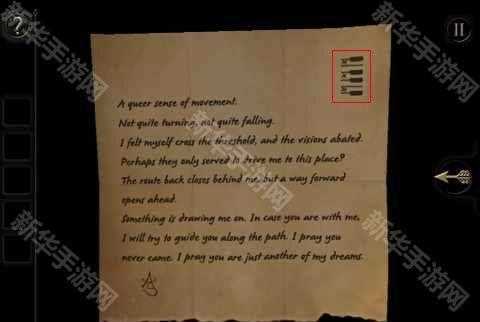 A queer sense of movement.
Not quite turning, not quite falling.
I felt myself cross the threshold, and the visions abated.
Perhaps they only served to drive me to this place?
The route back closes behind me, but a way forward
opens ahead.
Something is drawing me on. In case you are with me,
I will try to guide you along the path. I pray you
never came. I pray you are just another of my dreams.
新华手游网
新华手游网
新华手游网
新华手游网
新华手游网
新华手游网